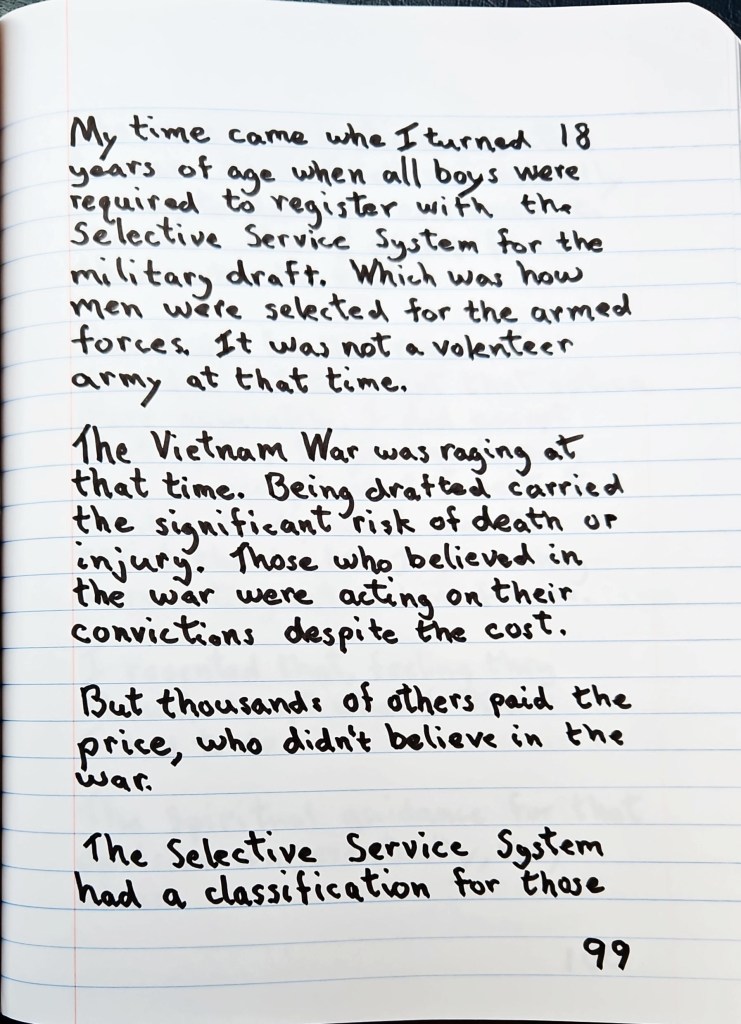 My time came whe I turned 18
years of age when all boys were
required to register with the
Selective Service System for the
military draft. Which was how
men were selected for the armed
forces. It was not a volenteer
army at that time.
The Vietnam War was raging at
that time. Being drafted carried
the significant risk of death or
injury. Those who believed in
the war were acting on their
convictions despite the cost.
But thousands of others paid the
price, who didn't believe in the
war.
The Selective Service System
had a classification for those
99